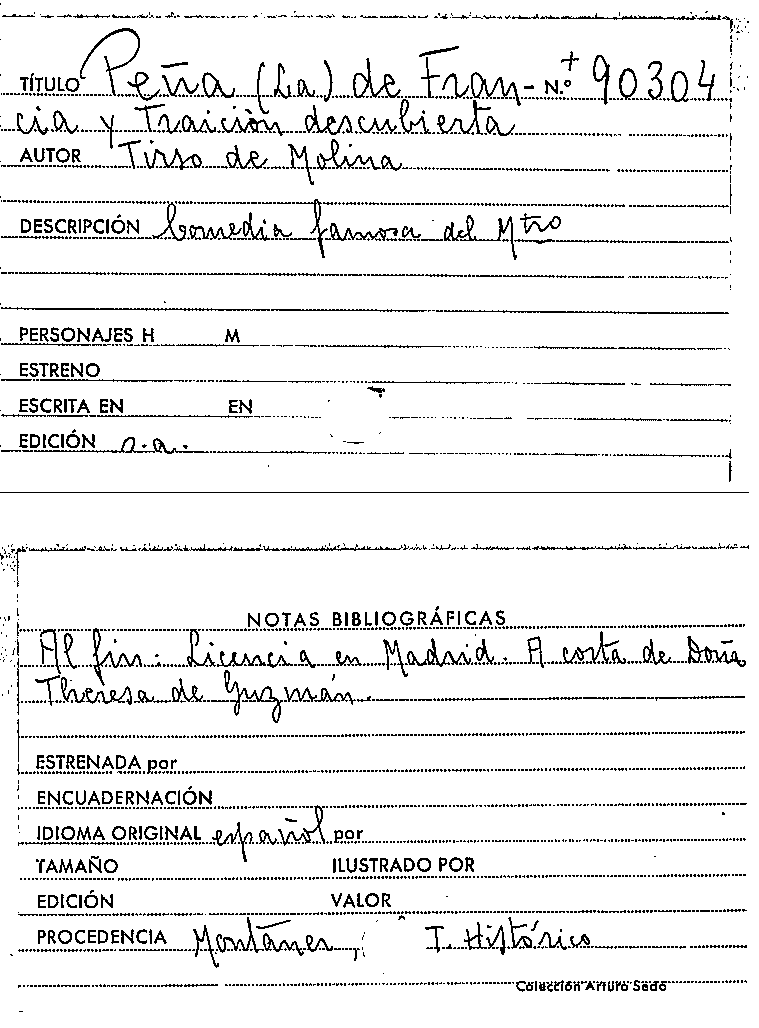 TÍTULO Peña (La) de Fran- N.º + 90304
cia y Traición descubierta
AUTOR Tirso de Molina
DESCRIPCIÓN Comedia famosa del Mtro
PERSONAJES H M
ESTRENO
ESCRITA EN EN
EDICIÓN s.a.
NOTAS BIBLIOGRÁFICAS
Al fin: Licencia en Madrid. A costa de Doña
Theresa de Guzmán.
ESTRENADA por
ENCUADERNACIÓN
IDIOMA ORIGINAL español por
TAMAÑO ILUSTRADO POR
EDICIÓN VALOR
PROCEDENCIA Montaner, T. Histórico
Colección Arturo Sedó